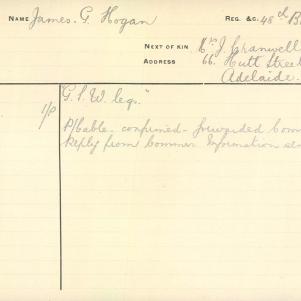 NAME James. G. Hogan
REG. &C. 48th B
NEXT OF KIN Mrs J. Cranwell
ADDRESS 66. Hutt Street
Adelaide.
"G.S.W. legs."
P/Cable - confirmed - forwarded Com
Reply from Commr. Information sen